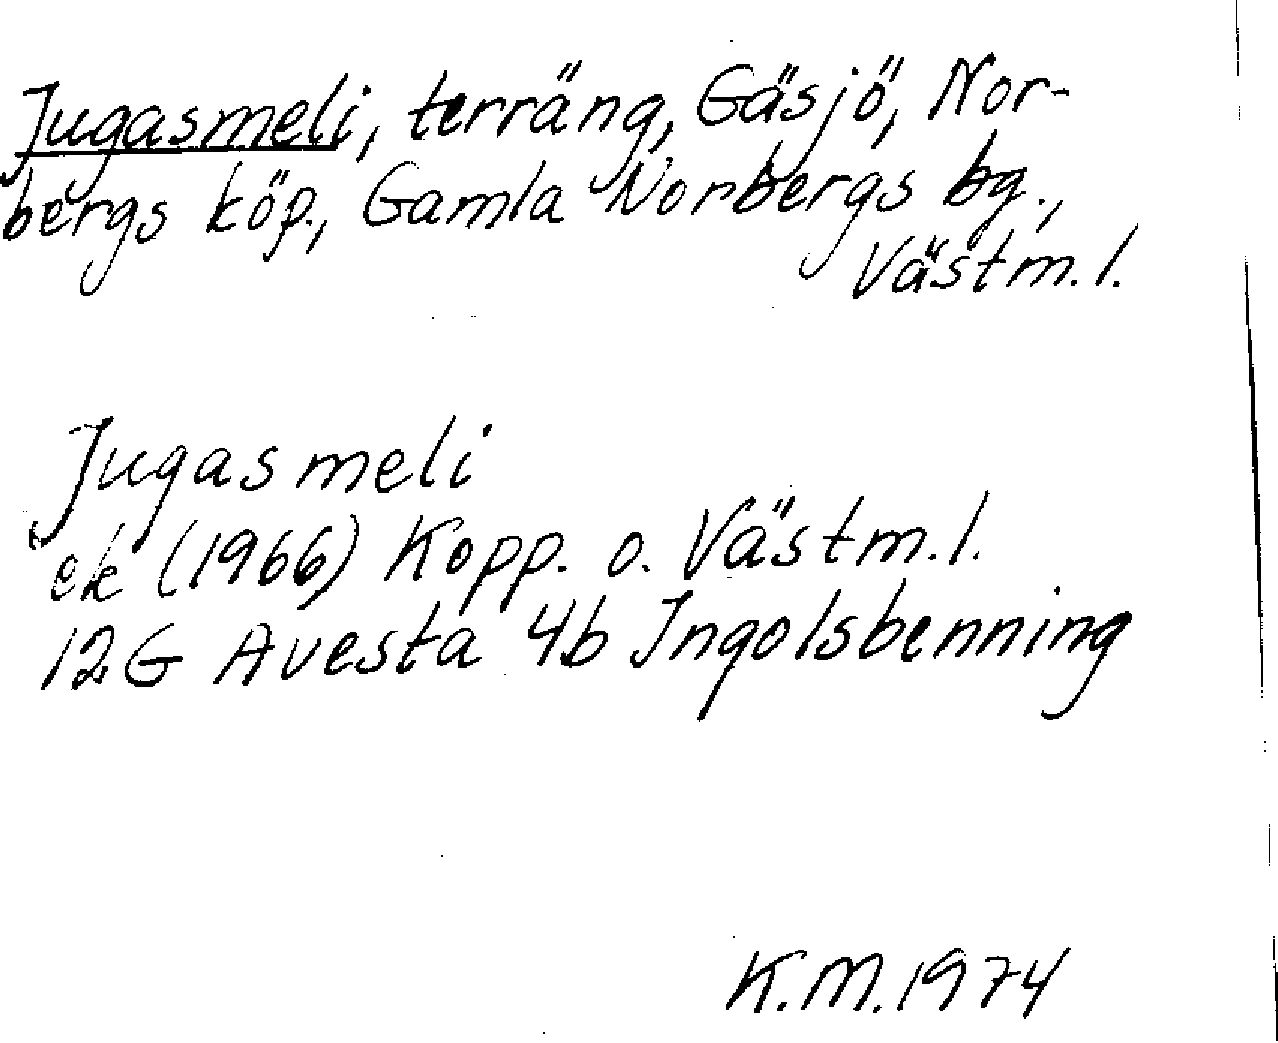 Jugasmeli, terräng, Gäsjö, Nor-
bergs köp., Gamla Norbergs bg.,
Västm.l.
Jugasmeli
ek (1966) Kopp. o. Västm.l.
12G Avesta 4b Ingolsbenning
K.M.1974